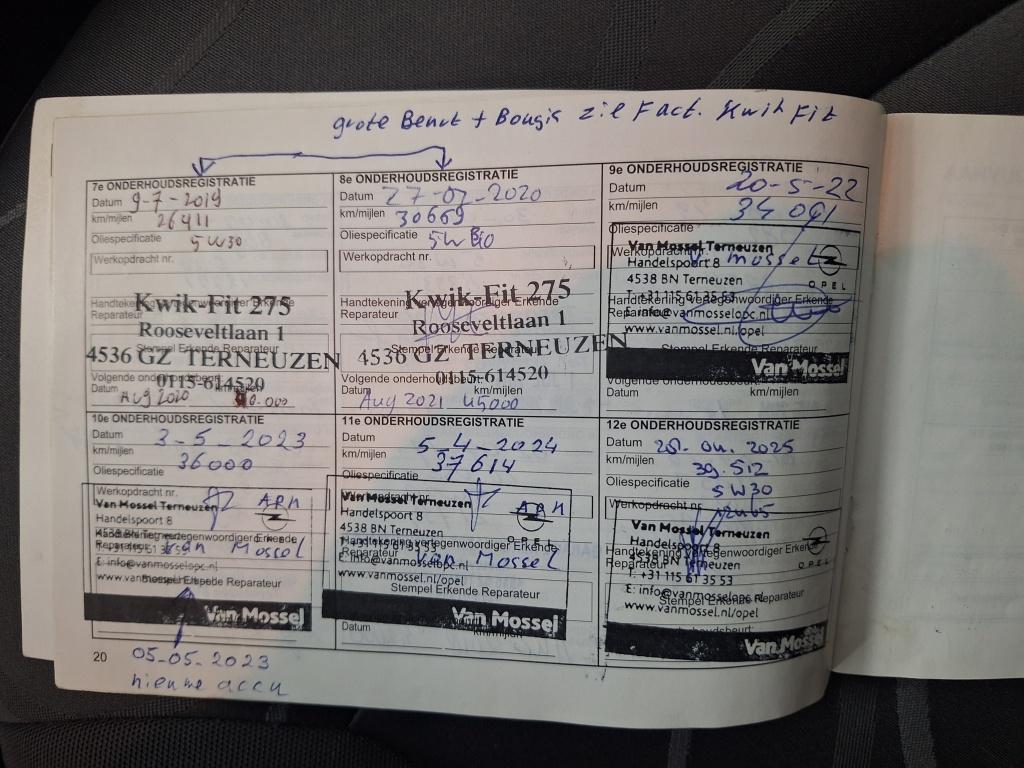 grote Beurt + Bougis zie Fact. Kwik Fit
7e ONDERHOUDSREGISTRATIE
Datum 9-7-2019
km/mijlen 26411
Oliespecificatie 5W30
Werkopdracht nr.
Handtekening vertegenwoordiger Erkende
Reparateur
Kwik-Fit 275
Rooseveltlaan 1
Stempel Erkende Reparateur
4536 GZ TERNEUZEN
0115-614520
Volgende onderhoudsbeurt:
Datum km/mijlen
Aug 2020
8e ONDERHOUDSREGISTRATIE
Datum 27-07-2020
km/mijlen 30669
Oliespecificatie 5W30
Werkopdracht nr.
Handtekening vertegenwoordiger Erkende
Reparateur
Kwik-Fit 275
Rooseveltlaan 1
Stempel Erkende Reparateur
4536 GZ TERNEUZEN
0115-614520
Volgende onderhoudsbeurt:
Datum km/mijlen
Aug 2021 45000
9e ONDERHOUDSREGISTRATIE
Datum 20-5-22
km/mijlen 34091
Oliespecificatie
Werkopdracht nr.
v Mossel
Van Mossel Terneuzen
Handelspoort 8
4538 BN Terneuzen
T: +31 115 61 35 53
E: info@vanmosselopc.nl
www.vanmossel.nl/opel
OPEL
Handtekening vertegenwoordiger Erkende
Reparateur
Stempel Erkende Reparateur
Van Mossel
Volgende onderhoudsbeurt:
Datum km/mijlen
10e ONDERHOUDSREGISTRATIE
Datum 3-5-2023
km/mijlen 36000
Oliespecificatie
Werkopdracht nr.
Van Mossel Terneuzen
Handelspoort 8
4538 BN Terneuzen
T: +31 115 61 35 53
E: info@vanmosselopc.nl
www.vanmossel.nl/opel
Van Mossel
Reparateur
Stempel Erkende Reparateur
Van Mossel
11e ONDERHOUDSREGISTRATIE
Datum 5-4-2024
km/mijlen 37614
Oliespecificatie
Werkopdracht nr.
Van Mossel Terneuzen
Handelspoort 8
4538 BN Terneuzen
T: +31 115 61 35 53
E: info@vanmosselopc.nl
www.vanmossel.nl/opel
OPEL
Handtekening vertegenwoordiger Erkende
Reparateur
Van Mossel
Stempel Erkende Reparateur
Van Mossel
Datum km/mijlen
12e ONDERHOUDSREGISTRATIE
Datum 25.04.2025
km/mijlen 39.512
Oliespecificatie 5W30
Werkopdracht nr.
Van Mossel Terneuzen
Handelspoort 8
4538 BN Terneuzen
T: +31 115 61 35 53
E: info@vanmosselopc.nl
www.vanmossel.nl/opel
OPEL
Handtekening vertegenwoordiger Erkende
Reparateur
Stempel Erkende Reparateur
Van Mossel
20
05-05-2023
nieuwe accu